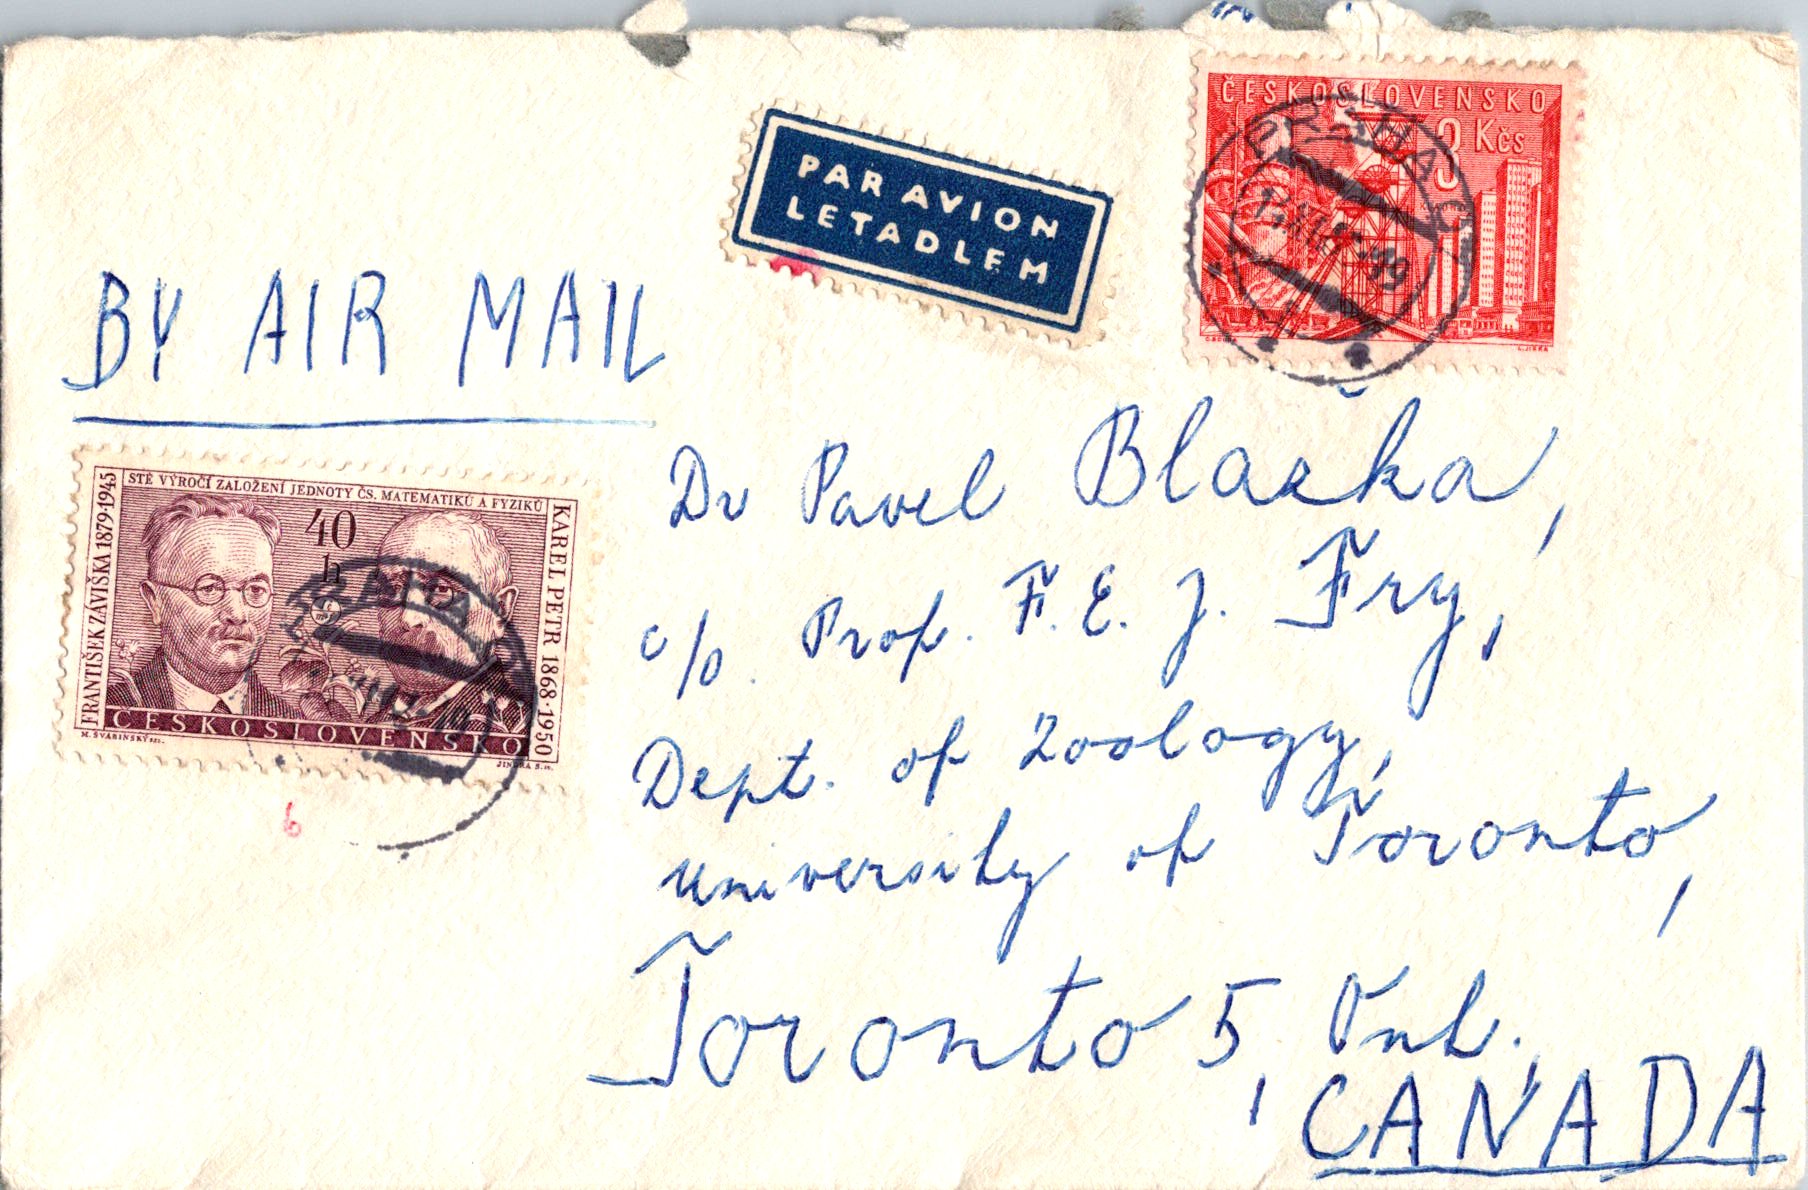 ČESKOSLOVENSKO
3 Kčs
PRAHA
PAR AVION
LETADLEM
BY AIR MAIL
STÉ VÝROČÍ ZALOŽENÍ JEDNOTY ČS. MATEMATIKŮ A FYZIKŮ
FRANTIŠEK ZÁVIŠKA 1879-1945
40
h
KAREL PETR 1868-1950
ČESKOSLOVENSKO
M. ŠVABINSKÝ
PRAHA
6
Dr Pavel Blažka,
c/o. Prof. F. E. J. Fry,
Dept. of Zoology,
University of Toronto,
Toronto 5, Ont.,
CANADA